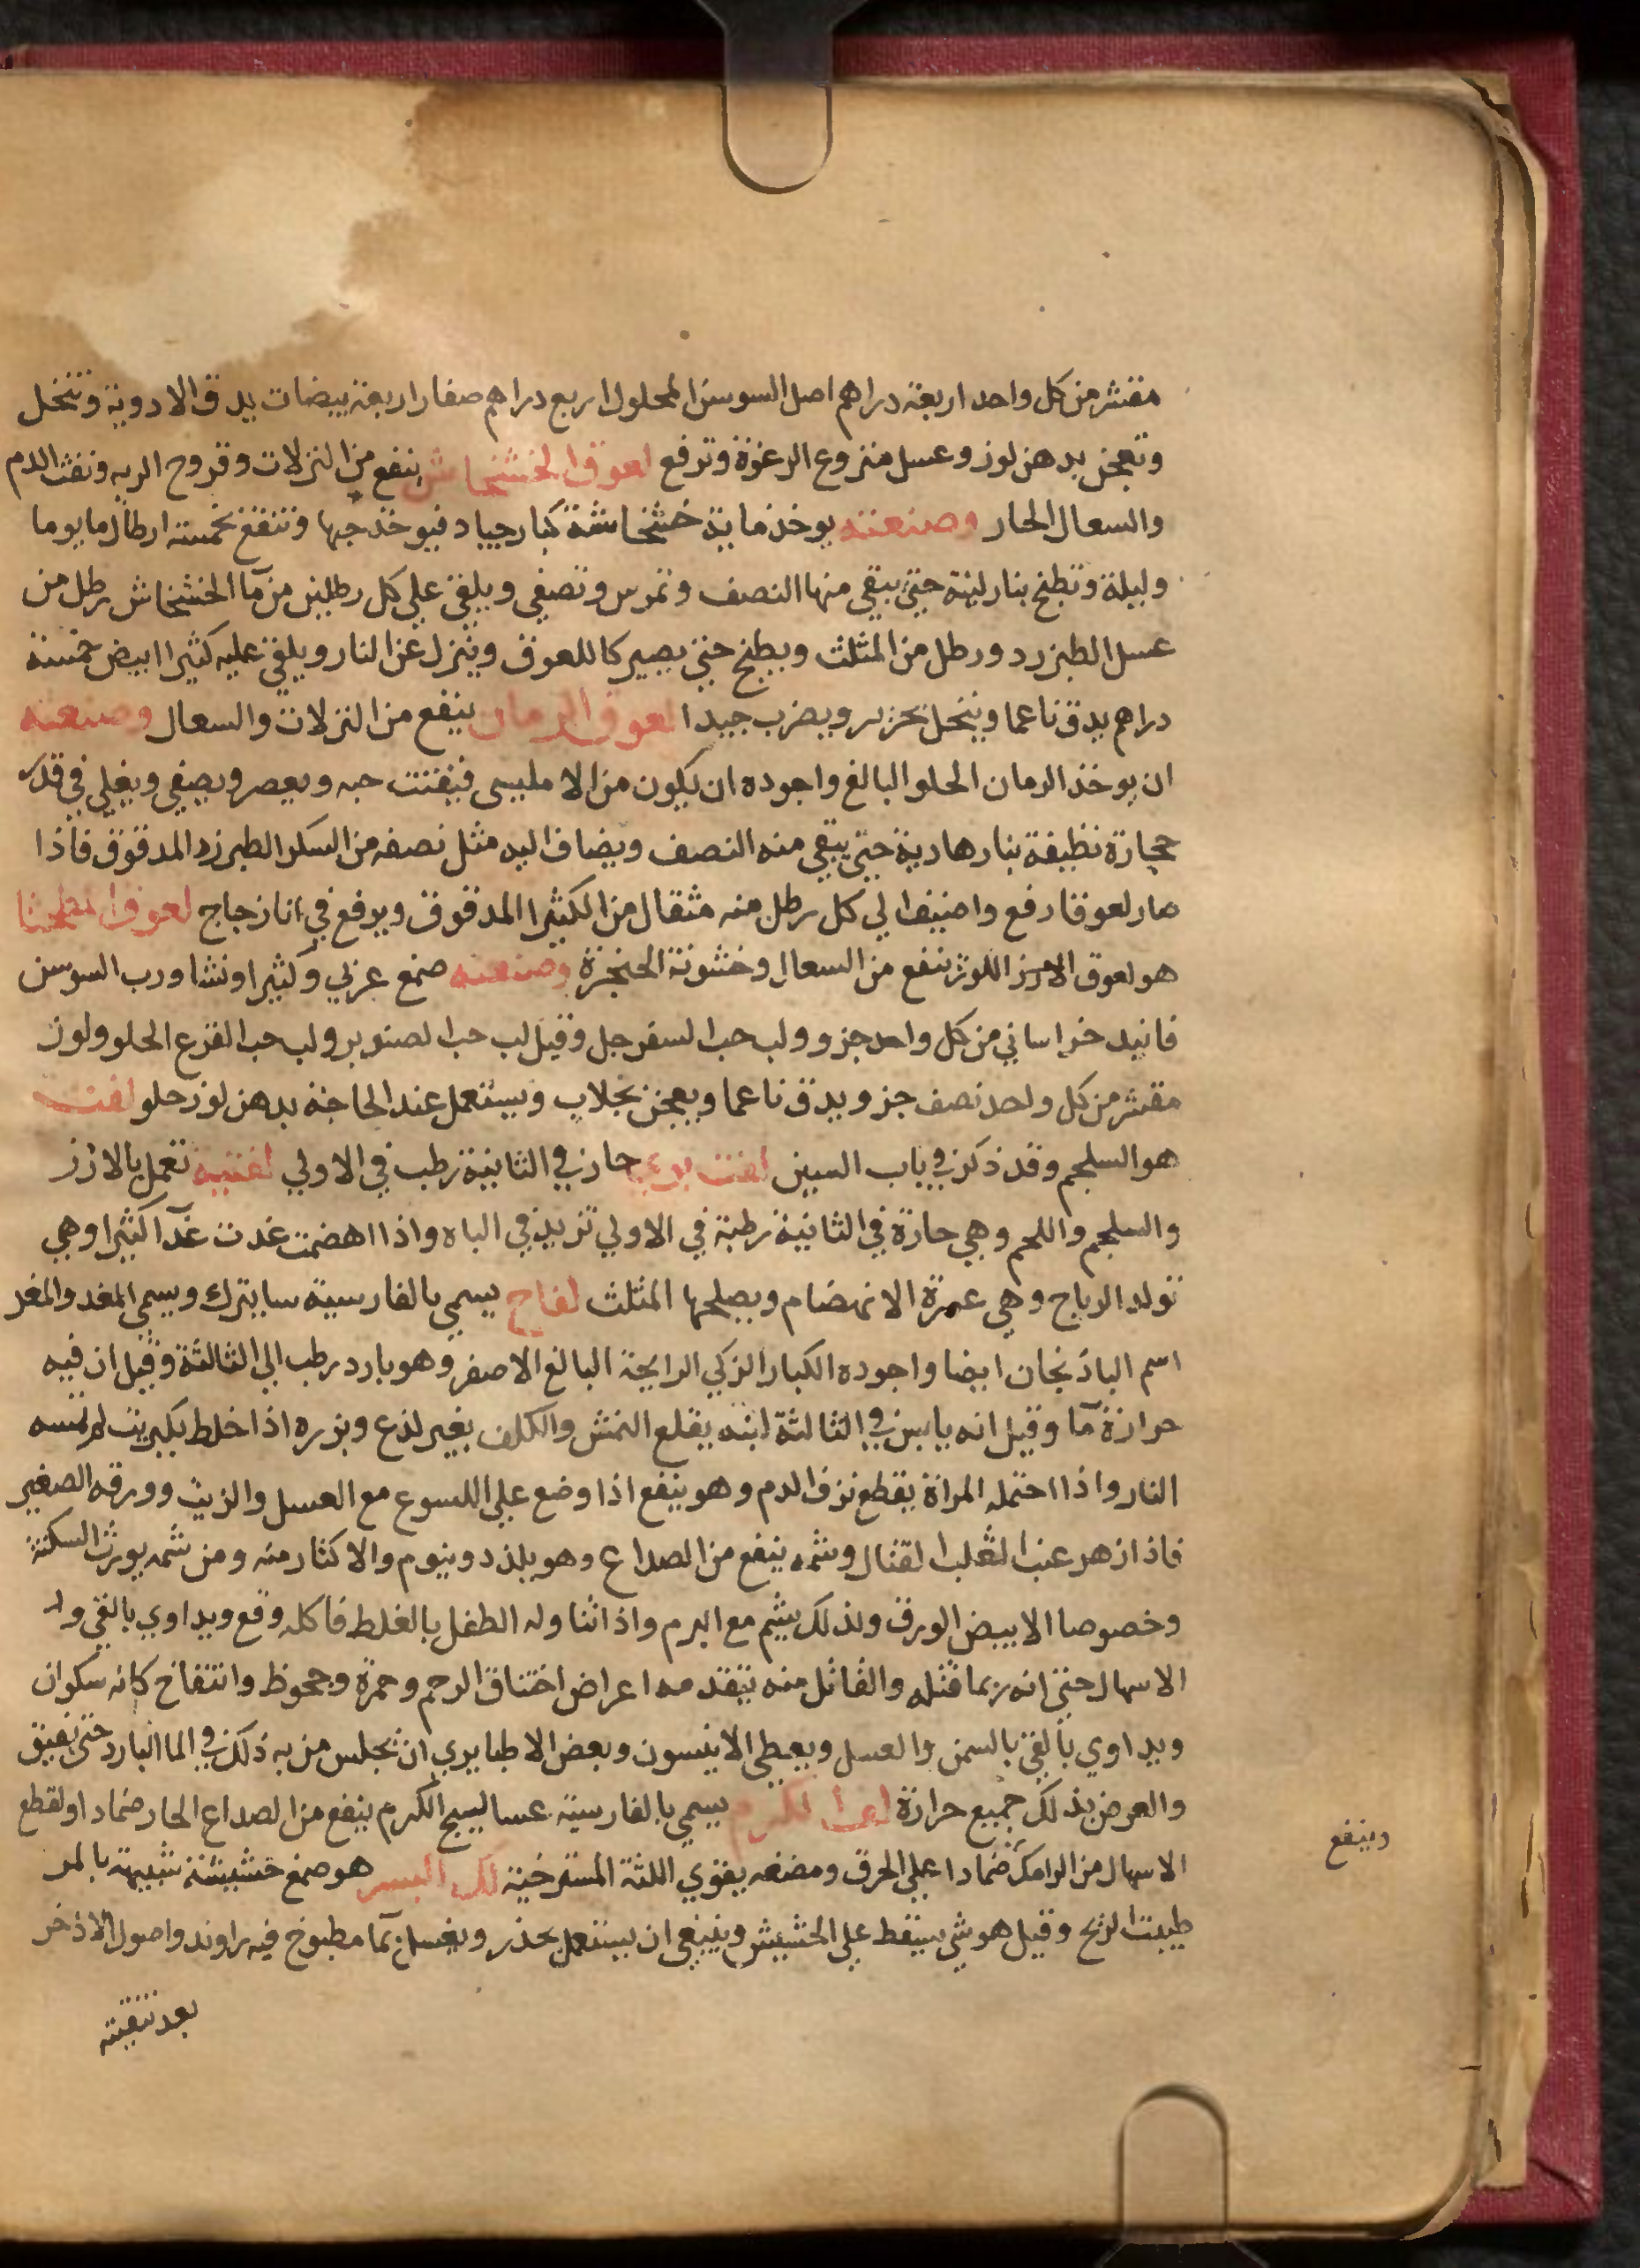 مقشر من كل واحد اربعة دراهم اصل السوسن المحلول اربع دراهم صفار اربعة بيضات يدق الادوية وتنخل
وتعجن بدهن لوز وعسل منزوع الرغوة وترفع لعوق الخشخاش ينفع من النزلات وقروح الريه ونفث الدم
والسعال الحار وصنعته يوخذ ماية خشخاشة كبار جياد فيوخذ حبها وتنقع بخمسة ارطال ما يوما
وليلة وتطبخ بنار لينة حتي يبقي منها النصف وتمرس وتصفي ويلقي علي كل رطلين من مآ الخشخاش رطل من
عسل الطبرزد ورطل من المثلث ويطبخ حتي يصير كاللعوق وينزل عن النار ويلقي عليه كثيرا ابيض خمسة
دراهم يدق ناعما وينخل بحرير ويضرب جيدا لعوق الرمان ينفع من النزلات والسعال وصنعته
ان يوخذ الرمان الحلو البالغ واجوده ان يكون من الامليسي فيفتت حبه ويعصر ويصفي ويغلي في قدر
حجارة نظيفة بنار هادية حتي يبقي منه النصف ويضاف اليه مثل نصفه من السكر الطبرزد المدقوق فاذا
صار لعوقا رفع واضيف الي كل رطل منه مثقال من الكثيرا المدقوق ويرفع في انا زجاج لعوق
هو لعوق اللوز ينفع من السعال وخشونة الحنجرة وصنعته صمغ عربي وكثيرا ونشا ورب السوسن
فانيد خراساني من كل واحد جزو ولب حب السفرجل وقيل لب حب الصنوبر ولب حب القرع الحلو ولوز
مقشر من كل واحد نصف جزو يدق ناعما ويعجن بجلاب ويستعمل عند الحاجة بدهن لوز حلو لفت
هو السلجم وقد ذكر في باب السين لفت بري حار في الثانية رطب في الاولي لفتية تعمل بالارز
والسلجم واللحم وهي حارة في الثانية رطبة في الاولي تزيد في الباه واذا اهضمت غدت غدآ كثيرا وهي
تولد الرياح وهي عسرة الانهضام ويصلحها المثلث لفاح يسمي بالفارسية سابترك ويسمي المغد والمغد
اسم الباذنجان ايضا واجوده الكبار الزكي الرايحة البالغ الاصفر وهو بارد رطب الي الثالثة وقيل ان فيه
حرارة مآ وقيل انه يابس في الثالثة لبنه يقلع النمش والكلف بغير لذع وبزره اذا خلط بكبريت لم تمسه
النار واذا احتمله المراة يقطع نزف الدم وهو ينفع اذا وضع علي اللسوع مع العسل والزيت وورقه الصغير
فاذا زهر عنب الثعلب القتال وشمه ينفع من الصداع وهو يبلد وينوم والاكثار منه ومن شمه يورث السكتة
وخصوصا الابيض الورق ولذلك يشم مع البرم واذا تناوله الطفل بالغلط فاكله وقع ويداوي بالقي و
الاسهال حتي انه ربما قتله والقاتل منه يتقدمه اعراض اختناق الرحم وحمرة وجحوظ وانتفاخ كانه سكران
ويداوي بالقي بالسمن والعسل ويعطي الانيسون وبعض الاطبا يري ان يجلس من به ذلك في الما البارد حتي يفيق
والعرض بذلك جميع حرارة الكرم يسمي بالفارسية عساليج الكرم ينفع من الصداع الحار ضمادا ولقطع
وينفع
الاسهال من الرامك ضمادا علي الحرق ومضغه يقوي اللثة المسترخية لك هو صمغ حشيشة شبيهة بالمر
طيبت الريح وقيل هو شي يسقط علي الحشيش وينبغي ان يستعمل بحذر ويغسل بمآ مطبوخ فيه راوند واصول الاذخر
بعد تنقيته